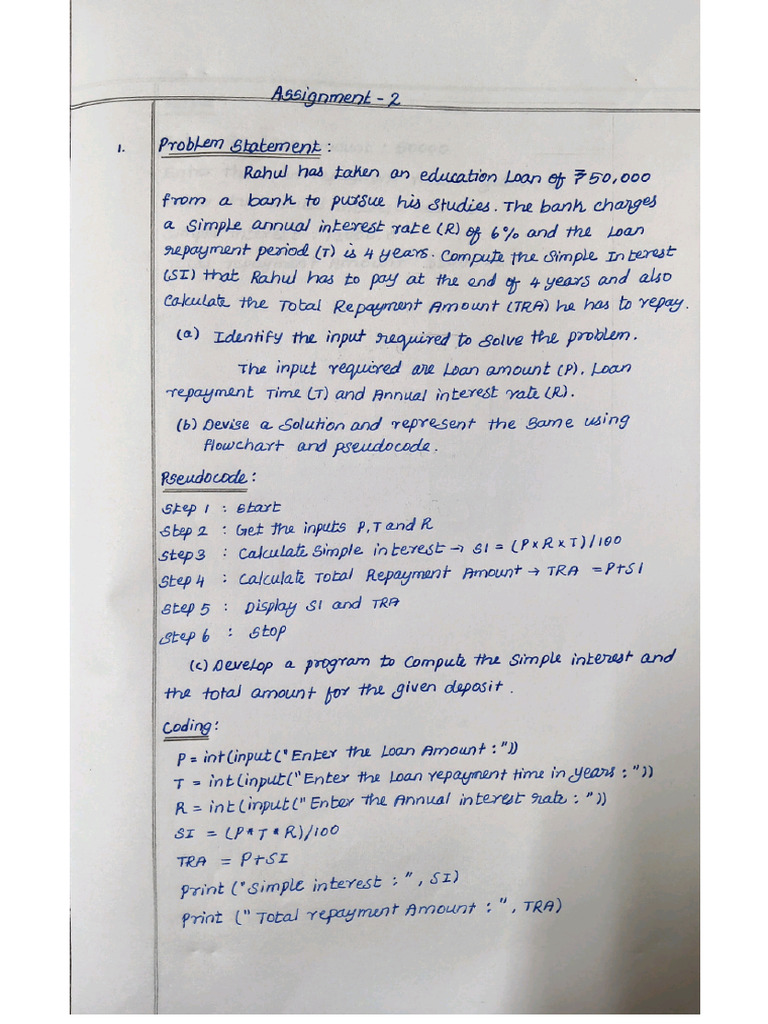 Assignment - 2
1. Problem Statement :
Rahul has taken an education Loan of ₹50,000
from a bank to pursue his studies. The bank charges
a simple annual interest rate (R) of 6% and the Loan
repayment period (T) is 4 years. Compute the Simple Interest
(SI) that Rahul has to pay at the end of 4 years and also
Calculate the Total Repayment Amount (TRA) he has to repay.
(a) Identify the input required to solve the problem.
The input required are Loan amount (P), Loan
repayment Time (T) and Annual interest rate (R).
(b) Devise a Solution and represent the same using
flowchart and pseudocode.
Pseudocode :
Step 1 : Start
Step 2 : Get the inputs P, T and R
Step 3 : Calculate Simple interest → SI = (P×R×T)/100
Step 4 : Calculate Total Repayment Amount → TRA = P+SI
Step 5 : Display SI and TRA
Step 6 : Stop
(c) Develop a program to compute the simple interest and
the total amount for the given deposit.
Coding :
P = int(input("Enter the Loan Amount :"))
T = int(input("Enter the Loan repayment time in years : "))
R = int(input("Enter the Annual interest rate : "))
SI = (P*T*R)/100
TRA = P+SI
print ("Simple interest : ", SI)
print ("Total repayment Amount : ", TRA)